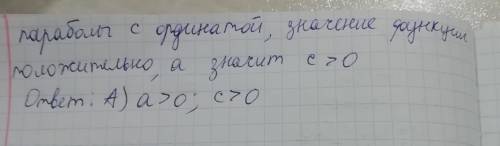 параболы с ординатой, значение функции
положительно, а значит c > 0
Ответ: А) a > 0; c > 0